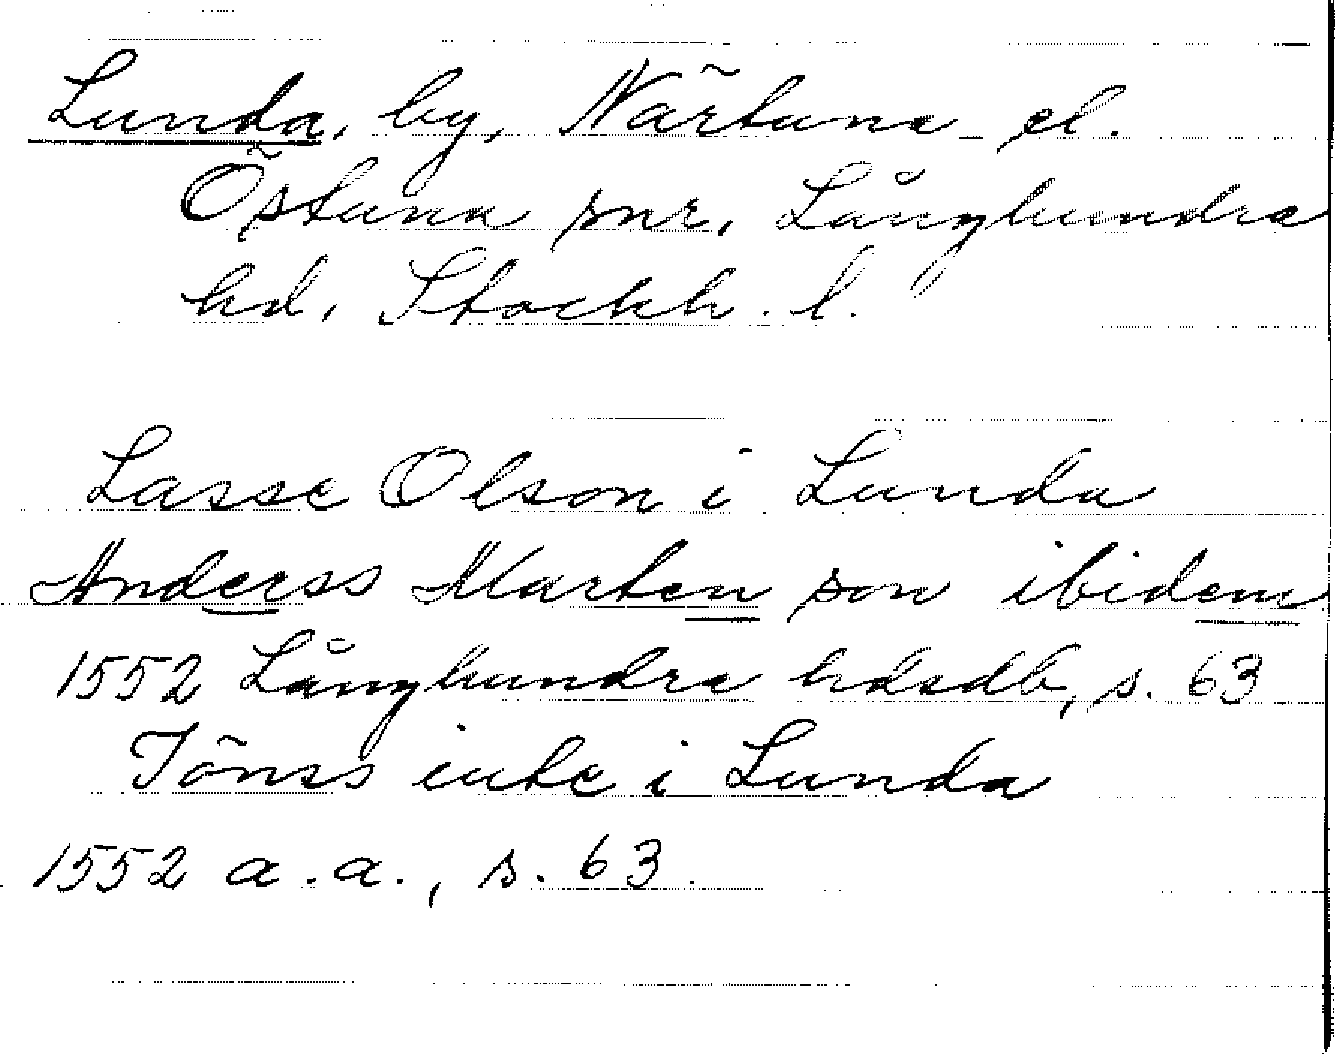 Lunda, by, Närtuna el.
Östuna snr, Långhundra
hd, Stockh. l.
Lasse Olson i Lunda
Anderss Marten son ibidem
1552 Långhundra hdsdb, s. 63
Jönss i Lunda
1552 a.a., s. 63.